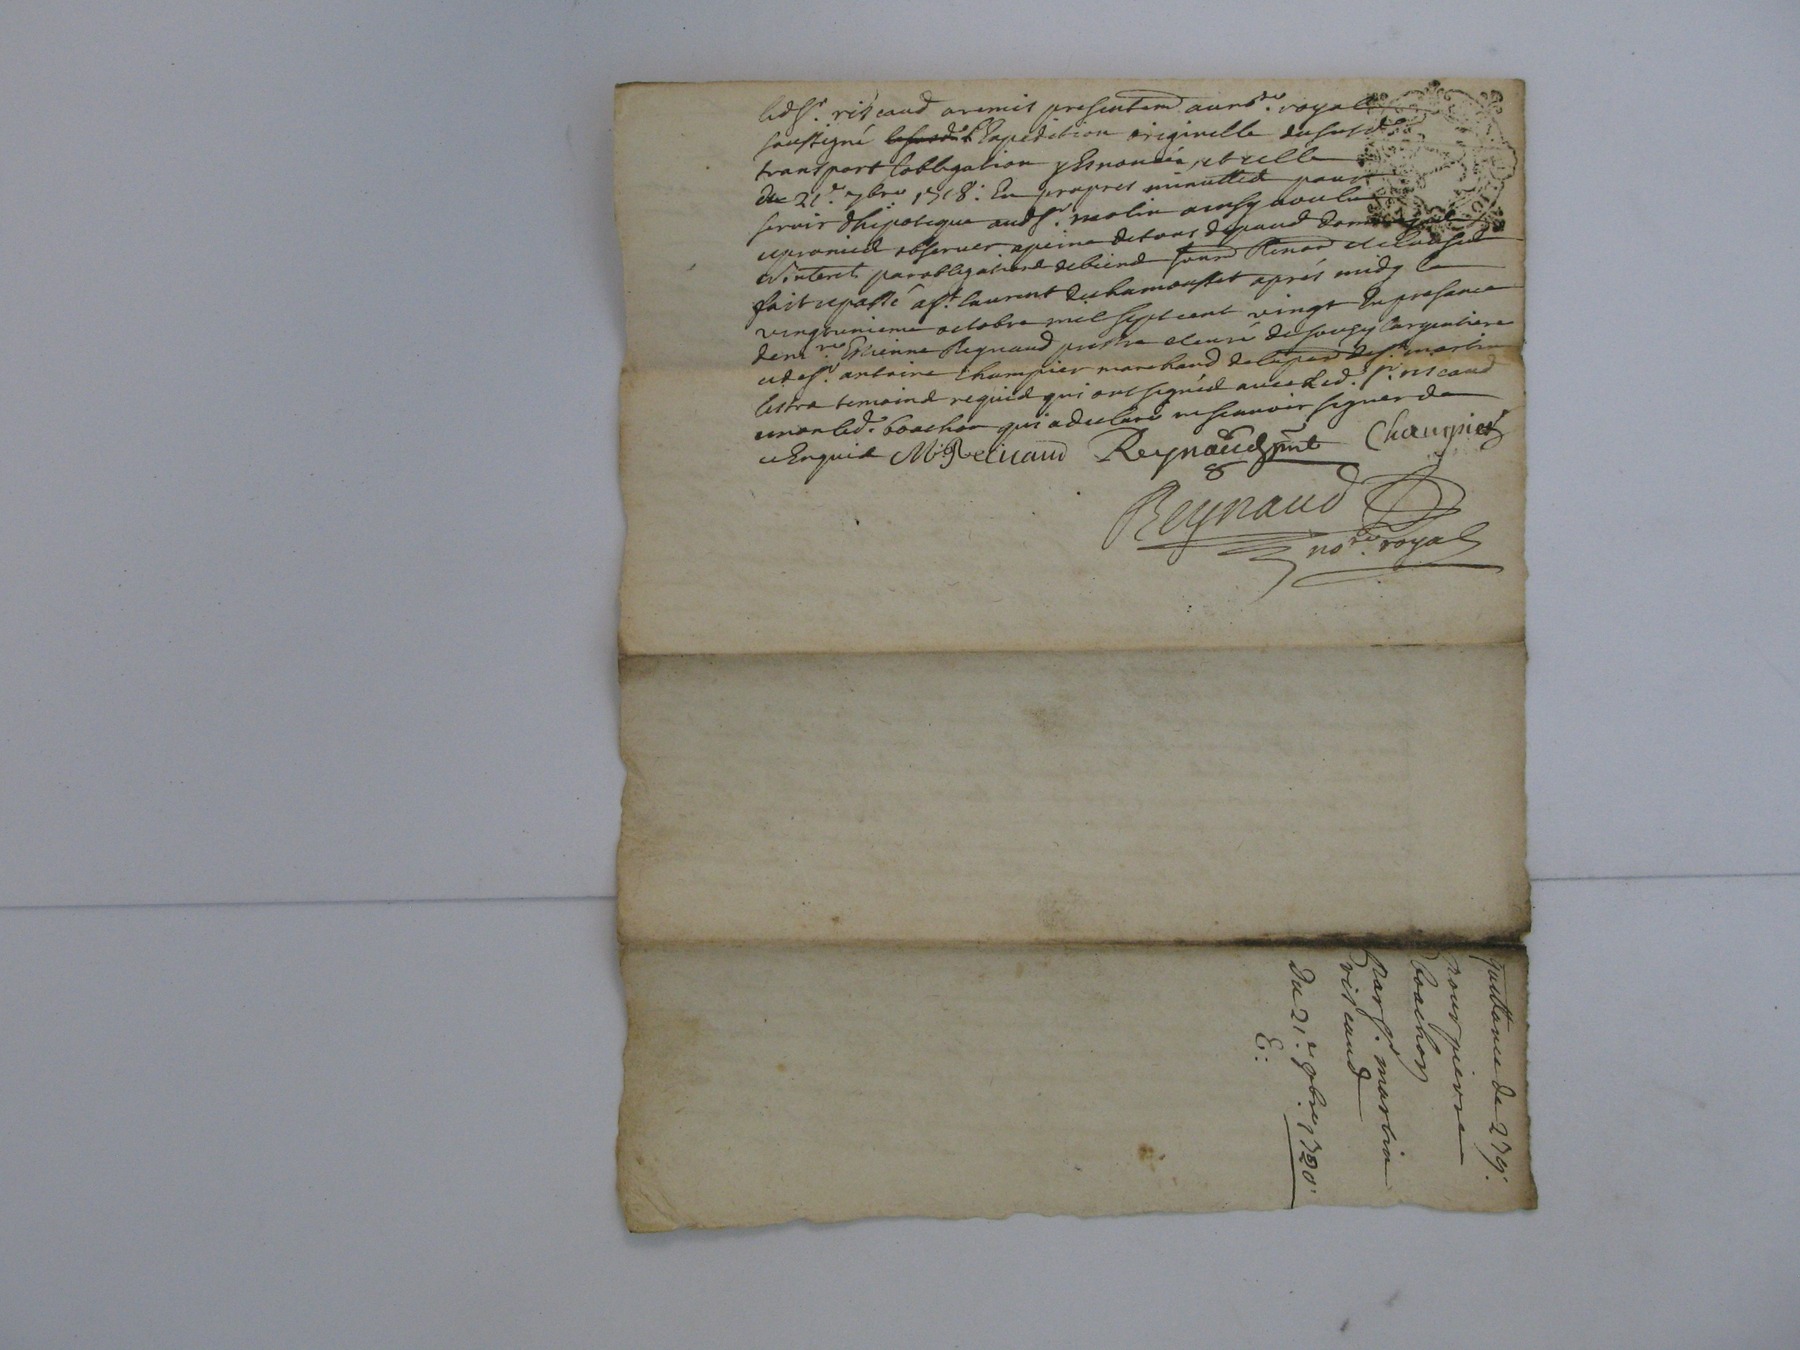 led sr. riscaud a remis presentemt. au nore. royal
soussigné l'expedition originelle du susd
transport l'obligation y Enoncée, et celle
du 21e. 7bre 1718: En propres minuttes pour
servir d'hipoteque aud sr. molin ainsy voulu
et promis observer a peine de tous depands dommages
et interets par obligations de biens soubs Renons et clauses
fait et passé a st. laurent de chamousset aprés midy le
vingt unieme octobre mil sept cent vingt En presance
de mre. Estienne Reynaud prestre et curé de souzy largentiere
et de sr. antoine Champier marchand de la parr de st. martin
lestra temoins requis qui ont signés avec led. sr. riscaud
et non led. boachon qui a declaré ne scavoir signer de
ce Enquis Reynaud pnt Champier
Reynaud
nore. royal
quittance de 279:
pour pierre
boachon
Par sr. martin
riscaud
Du 21e 1720
E: